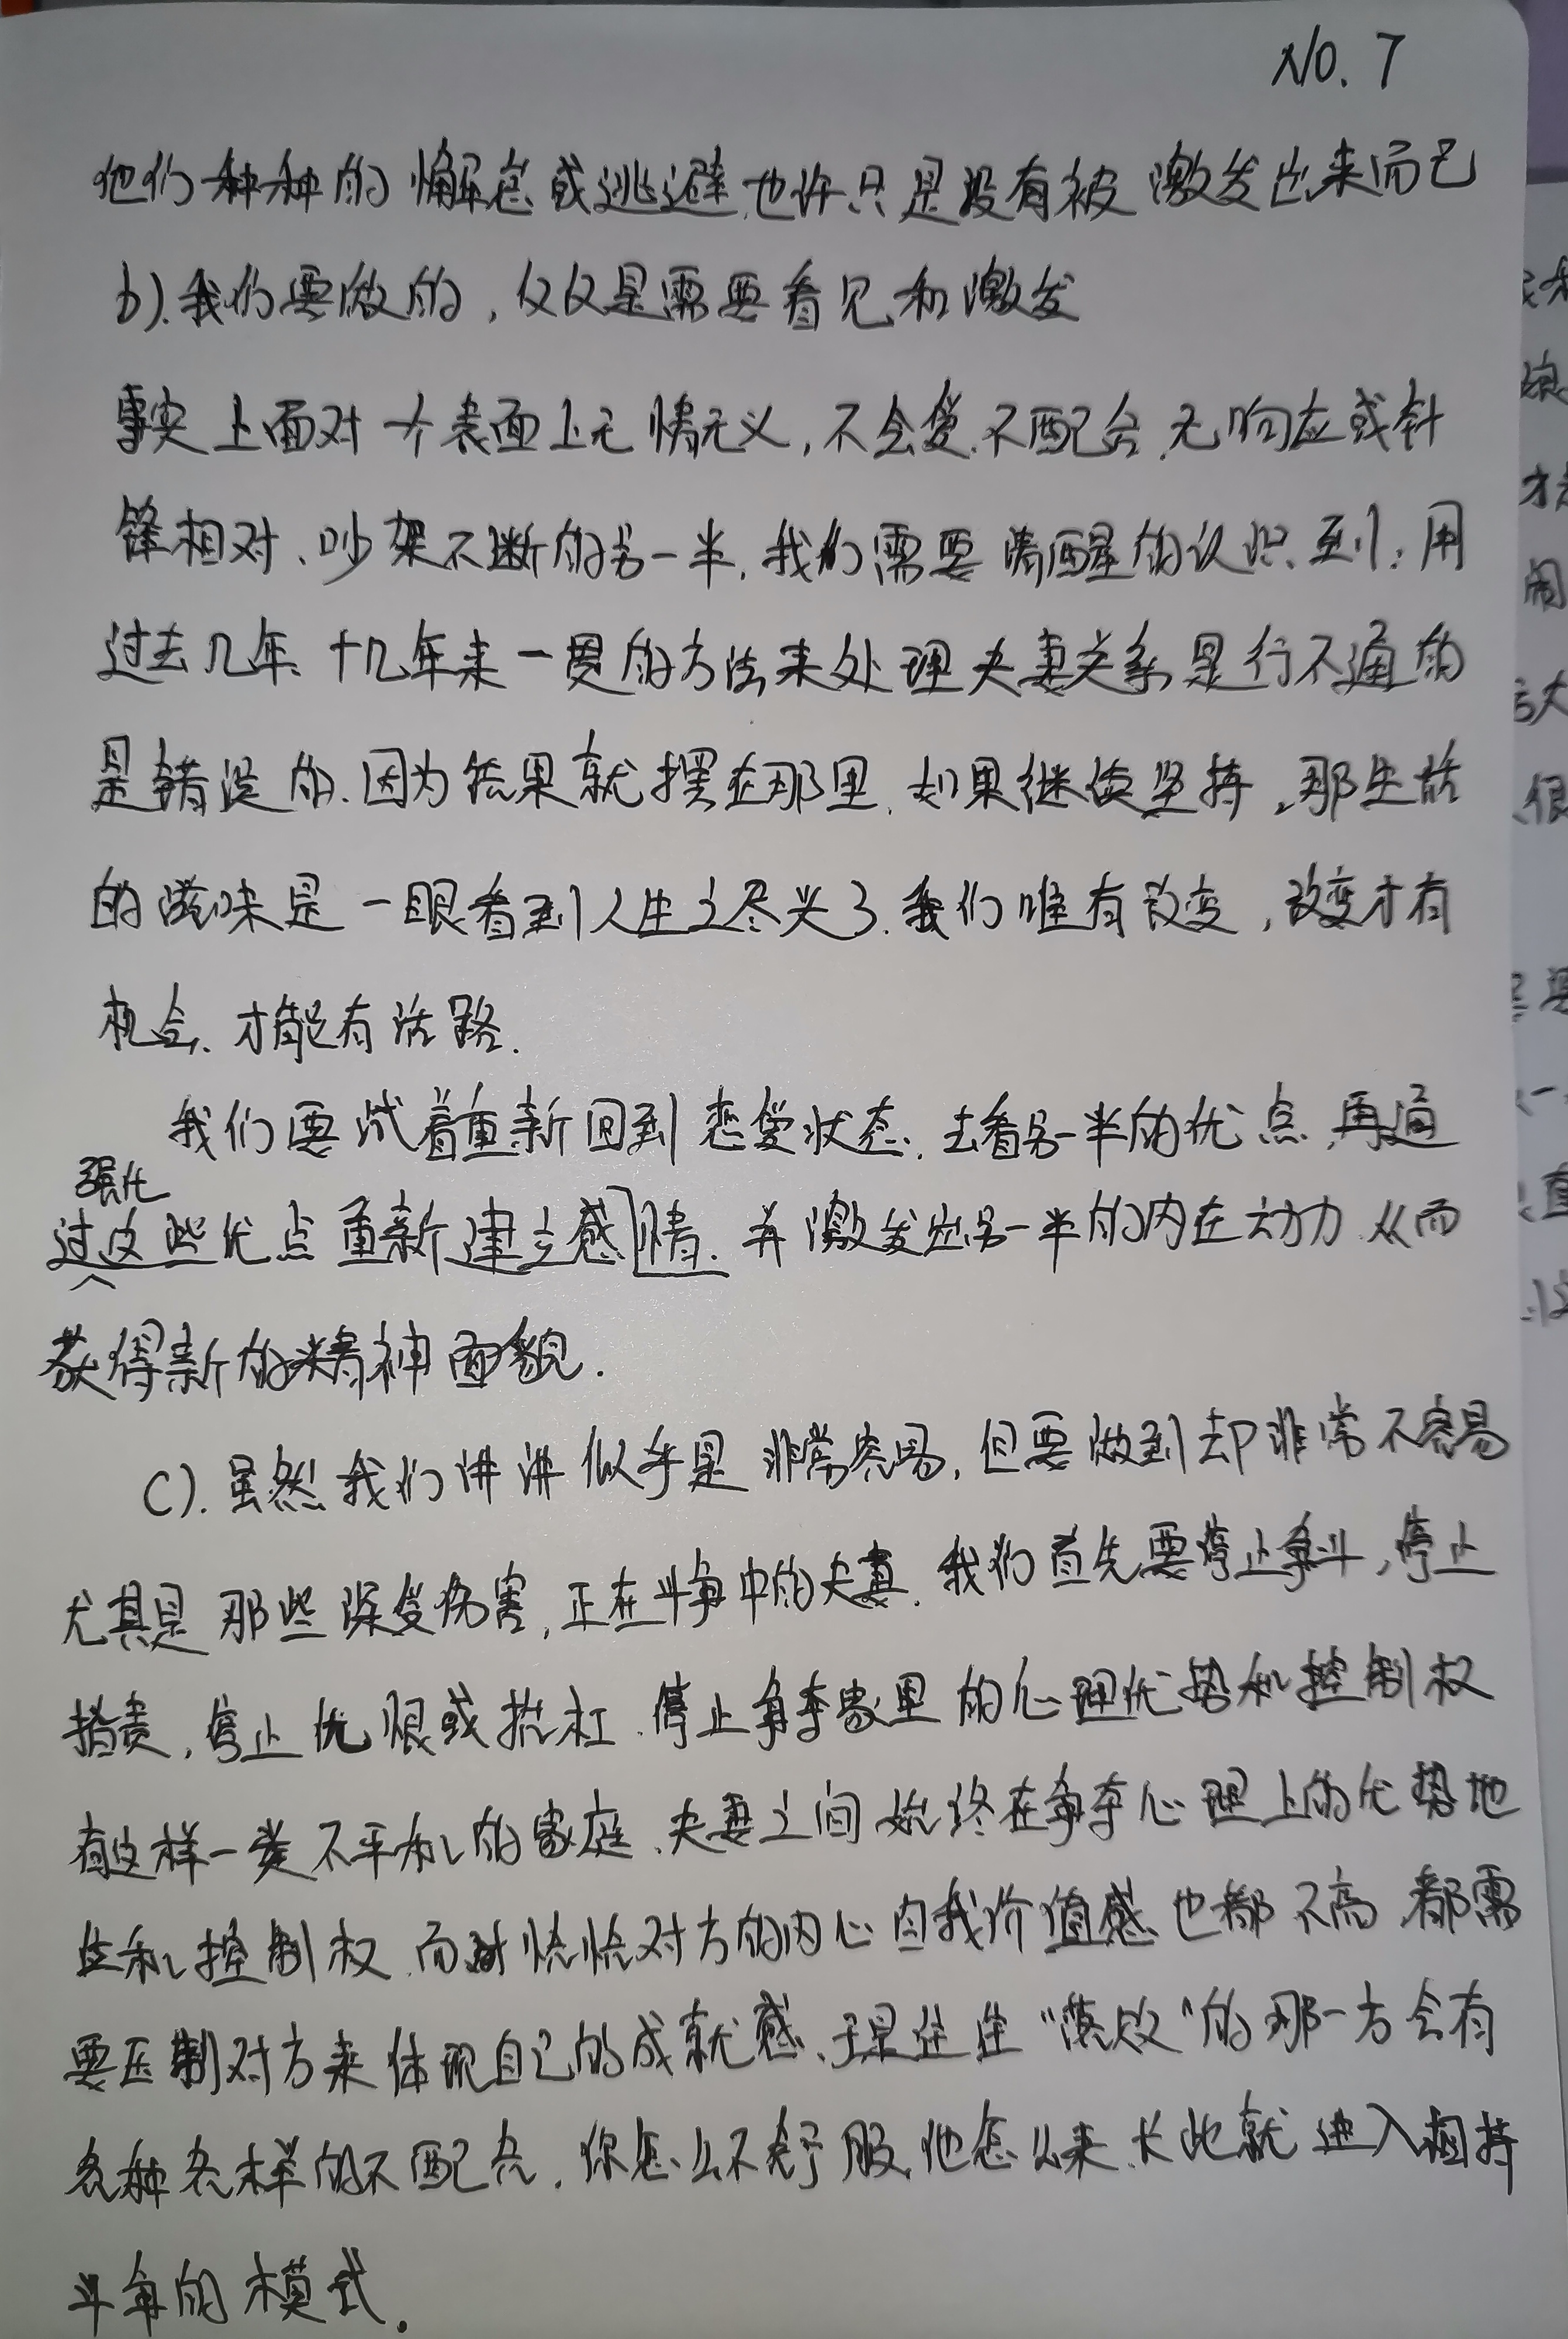 NO. 7
他们种种的懈怠或逃避.也许只是没有被激发出来而已
b).我们要做的,仅仅是需要看见和激发
事实上面对一个表面上无情无义,不会爱.不配合.无响应或针
锋相对、吵架不断的另一半,我们需要清醒的认识到:用
过去几年、十几年来一贯的方法来处理夫妻关系是行不通的
是错误的.因为结果就摆在那里.如果继续坚持,那生活
的滋味是一眼看到人生之尽头了.我们唯有改变,改变才有
机会、才能有活路.
我们要试着重新回到恋爱状态.去看另一半的优点.再通
强化
过这些优点重新建立感情.并激发出另一半的内在动力.从而
获得新的精神面貌.
C).虽然我们讲讲似乎是非常容易,但要做到却非常不容易
尤其是那些深受伤害,正在斗争中的夫妻.我们首先要停止争斗,停止
指责,停止忧恨或抗杠.停止争夺家里的心理优势和控制权
有这样一类不平和的家庭、夫妻之间始终在争夺心理上的优势地
位和控制权.而恰恰对方的内心自我价值感也都不高.都需
要压制对方来体现自己的成就感、于是往往“落败”的那一方会有
各种各样的不配合.你怎么不舒服,他怎么来.长此就进入相持
斗争的模式.